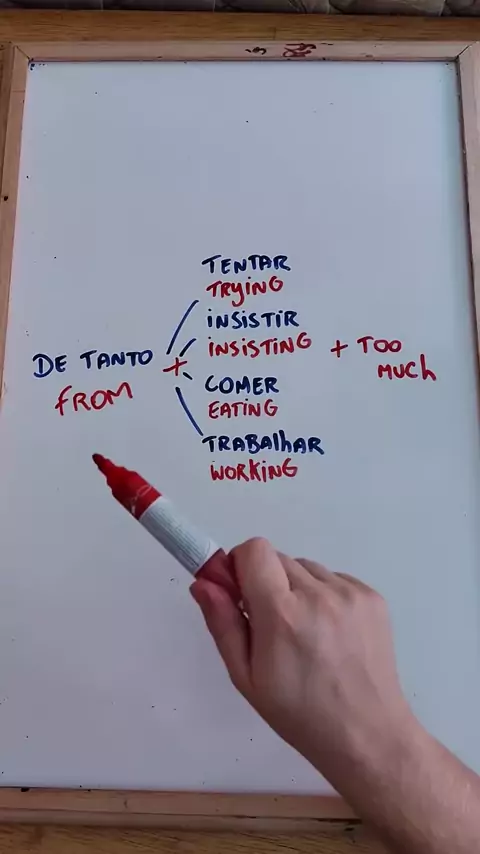 TENTAR
TRYING
INSISTIR
INSISTING
DE TANTO +
FROM
+ TOO
MUCH
COMER
EATING
TRABALHAR
WORKING